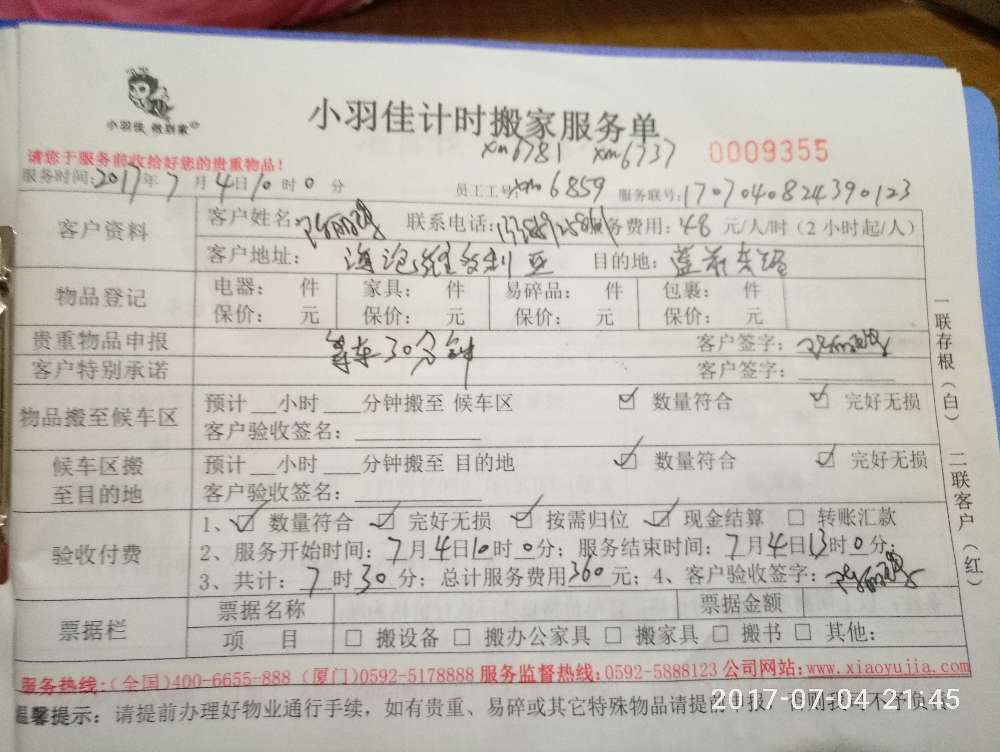 小羽佳 做到家
小羽佳计时搬家服务单
xm6781 xm6737 0009355
请您于服务前收给好您的贵重物品！
服务时间:2017年7月4日10时0分 员工工号:xm6859 服务联号:1707040824390123
客户资料 客户姓名: 联系电话: 服务费用:48元/人/时（2小时起/人）
客户地址: 海沧维多利亚 目的地:
物品登记 电器: 件 家具: 件 易碎品: 件 包裹: 件
保价: 元 保价: 元 保价: 元 保价: 元
贵重物品申报 等车30分钟 客户签字:
客户特别承诺 客户签字:
物品搬至候车区 预计__小时___分钟搬至 候车区 ☑ 数量符合 ☑ 完好无损
客户验收签名:
候车区搬至目的地 预计__小时___分钟搬至 目的地 ☑ 数量符合 ☑ 完好无损
客户验收签名:
验收付费 1、☑ 数量符合 ☑ 完好无损 ☑ 按需归位 ☑ 现金结算 □ 转账汇款
2、服务开始时间:7月4日10时0分；服务结束时间:7月4日13时0分；
3、共计:7时30分；总计服务费用360元；4、客户验收签字:
票据栏 票据名称 票据金额
项 目 □ 搬设备 □ 搬办公家具 □ 搬家具 □ 搬书 □ 其他:
一联存根（白） 二联客户（红）
服务热线:(全国)400-6655-888 (厦门)0592-5178888 服务监督热线:0592-5888123 公司网站:www.xiaoyujia.com
温馨提示: 请提前办理好物业通行手续，如有贵重、易碎或其它特殊物品请提前申报，否则我司不予负责
2017-07-04 21:45